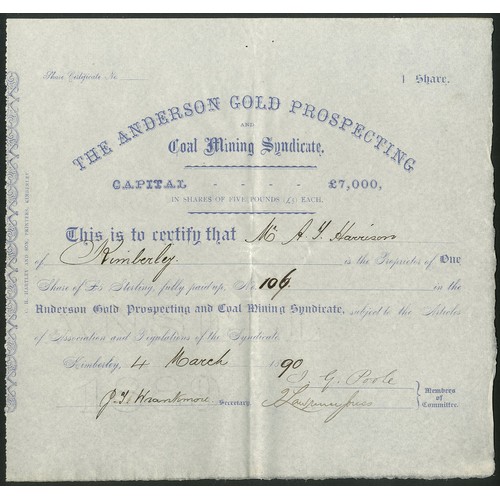 Share Certificate No.
1 Share.
THE ANDERSON GOLD PROSPECTING
AND
Coal Mining Syndicate.
CAPITAL - - - - £7,000,
IN SHARES OF FIVE POUNDS (£5) EACH.
This is to certify that Mr A. Y. Harrison
of Kimberley. is the Proprietor of One
Share of £5 Sterling, fully paid up, No. 106. in the
Anderson Gold Prospecting and Coal Mining Syndicate, subject to the Articles
of Association and Regulations of the Syndicate.
Kimberley, 4 March 1890
J. G. Poole
Secretary
Members
of
Committee
HARTLEY AND SON, PRINTERS, KIMBERLEY